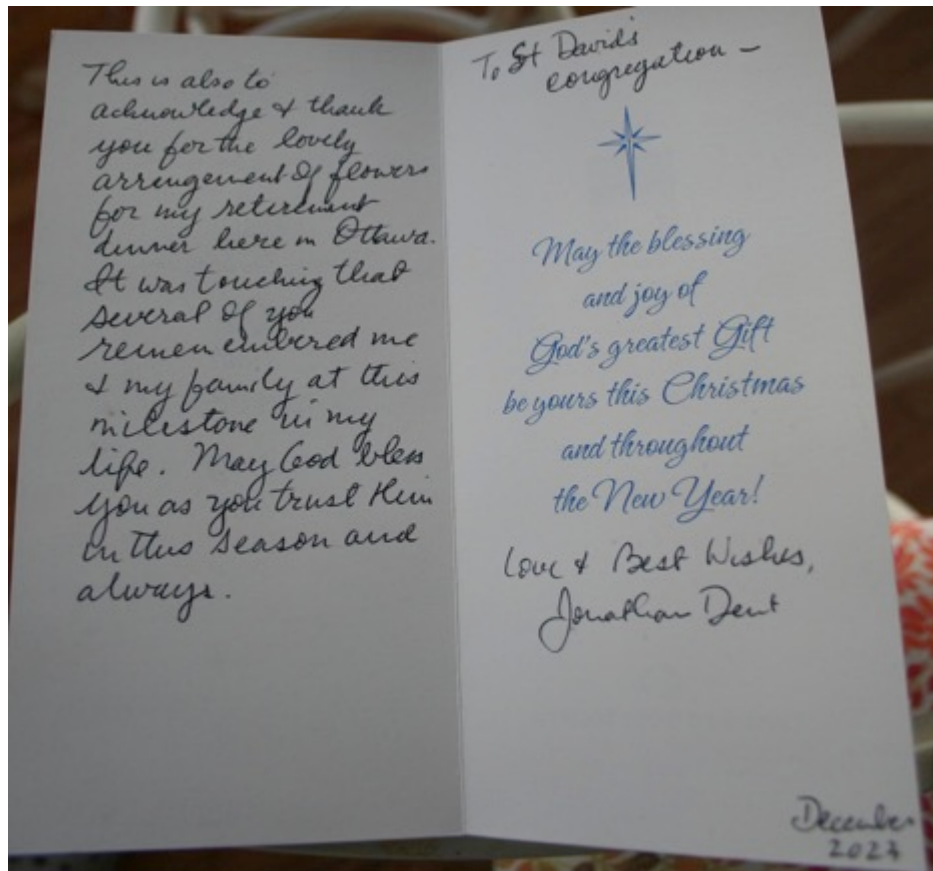 This is also to
acknowledge & thank
you for the lovely
arrangement of flowers
for my retirement
dinner here in Ottawa.
It was touching that
several of you
rememembered me
& my family at this
milestone in my
life. May God bless
you as you trust Him
in this season and
always.
To St David's
congregation —
May the blessing
and joy of
God's greatest Gift
be yours this Christmas
and throughout
the New Year!
Love & Best Wishes,
Jonathan Dent
December
2023